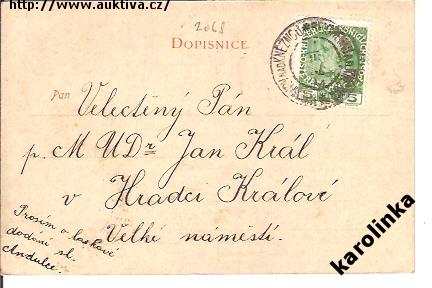 http://www.auktiva.cz/
2068
DOPISNICE
Pan
Velectěný Pán
p. MUDr Jan Král
v Hradci Králové
Velké náměstí.
Prosím o laskavé
dodání sl.
Andulce.
5
karolinka